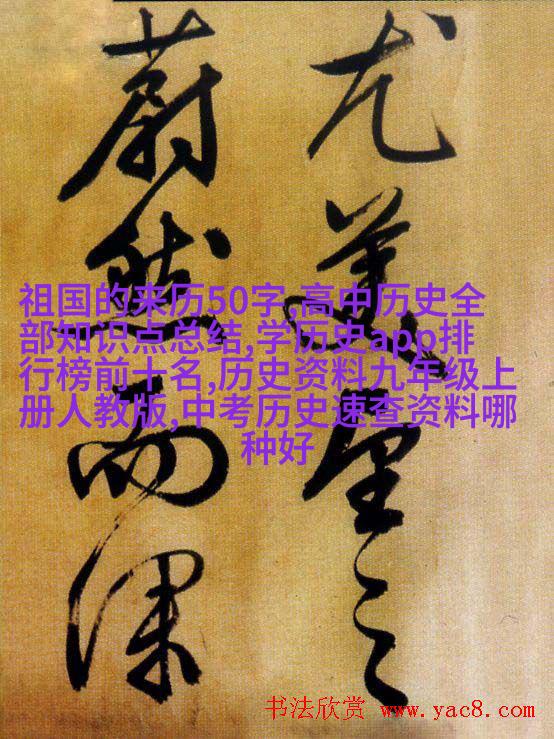 尤美望之
蔚然而深
祖国的来历50字,高中历史全
部知识点总结,学历史app排
行榜前十名,历史资料九年级上
册人教版,中考历史速查资料哪
种好
书法欣赏 www.yac8.com